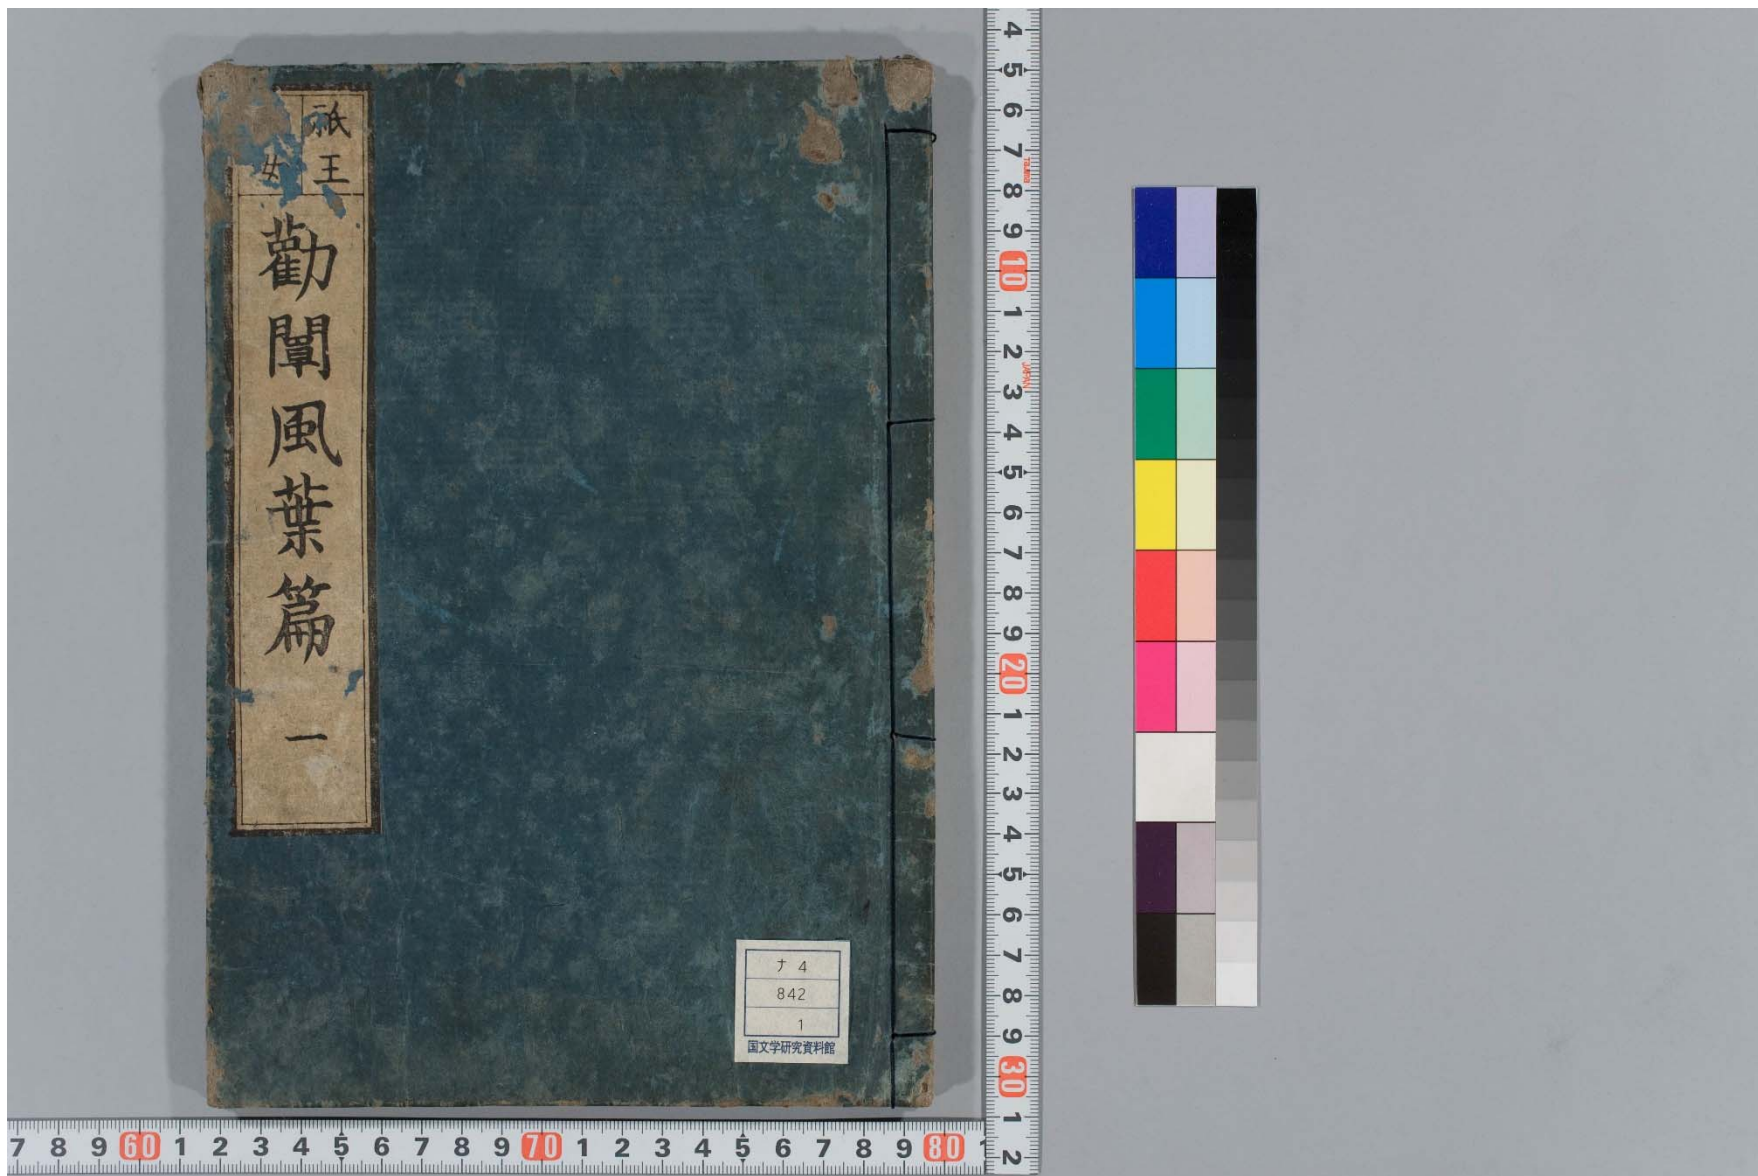 祇王
女
勸闡風葉篇 一
ナ 4
842
1
国文学研究資料館
4 5 6 7 8 9 10 1 2 3 4 5 6 7 8 9 20 1 2 3 4 5 6 7 8 9 30 1 2
JAPAN
7 8 9 60 1 2 3 4 5 6 7 8 9 70 1 2 3 4 5 6 7 8 9 80